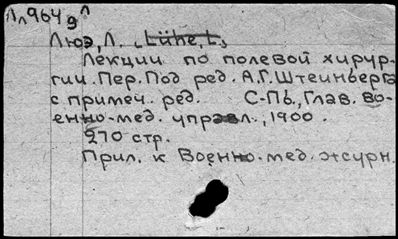 Лл964 g л
Люэ, Л. [Lühe, L.]
Лекции по полевой хирур-
гии. Пер. Под ред. А.Г. Штейнберга
с примеч. ред. С-Пб., Глав. во-
енно-мед. управл., 1900.
270 стр.
Прил. к Военно-мед. журн.